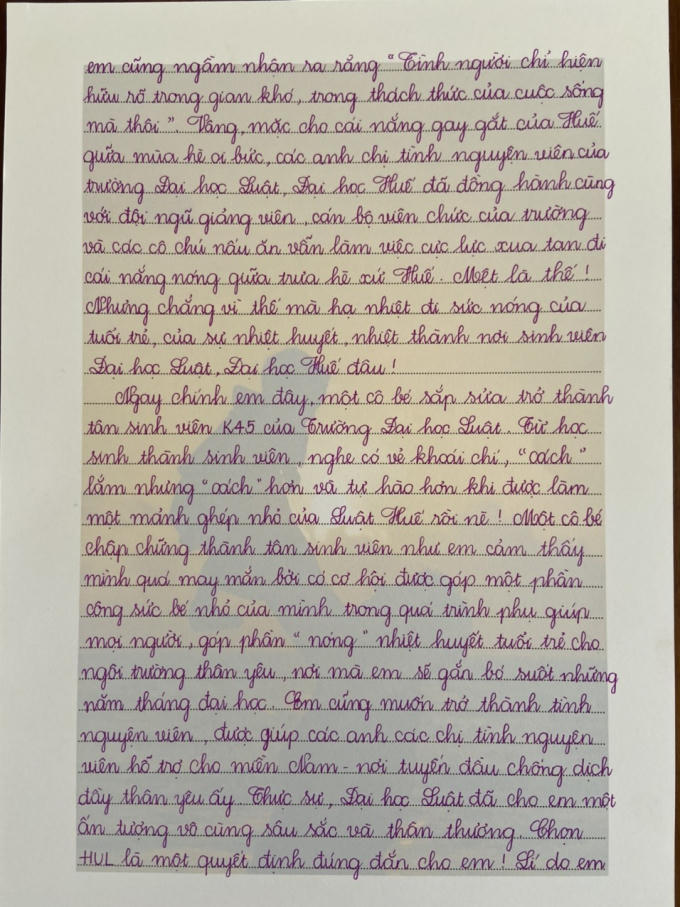 em cũng ngầm nhận ra rằng “Tình người chỉ hiện
hữu rõ trong gian khó, trong thách thức của cuộc sống
mà thôi”. Vâng, mặc cho cái nắng gay gắt của Huế
giữa mùa hè oi bức, các anh chị tình nguyện viên của
trường Đại học Luật, Đại học Huế đã đồng hành cùng
với đội ngũ giảng viên, cán bộ viên chức của trường
và các cô chú nấu ăn vẫn làm việc cực lực xua tan đi
cái nắng nóng giữa trưa hè xứ Huế. Mệt là thế!
Nhưng chẳng vì thế mà hạ nhiệt đi sức nóng của
tuổi trẻ, của sự nhiệt huyết, nhiệt thành nơi sinh viên
Đại học Luật, Đại học Huế đâu!
Ngay chính em đây, một cô bé sắp sửa trở thành
tân sinh viên K45 của Trường Đại học Luật. Từ học
sinh thành sinh viên, nghe có vẻ khoái chí, “oách”
lắm nhưng “oách” hơn và tự hào hơn khi được làm
một mảnh ghép nhỏ của Luật Huế rồi nè! Một cô bé
chập chững thành tân sinh viên như em cảm thấy
mình quá may mắn bởi có cơ hội được góp một phần
công sức bé nhỏ của mình trong quá trình phụ giúp
mọi người, góp phần “nóng” nhiệt huyết tuổi trẻ cho
ngôi trường thân yêu, nơi mà em sẽ gắn bó suốt những
năm tháng đại học. Em cũng muốn trở thành tình
nguyện viên, được giúp các anh các chị tình nguyện
viên hỗ trợ cho miền Nam - nơi tuyến đầu chống dịch
đầy thân yêu ấy. Thực sự, Đại học Luật đã cho em một
ấn tượng vô cùng sâu sắc và thân thương. Chọn
HUL là một quyết định đúng đắn cho em! Lí do em